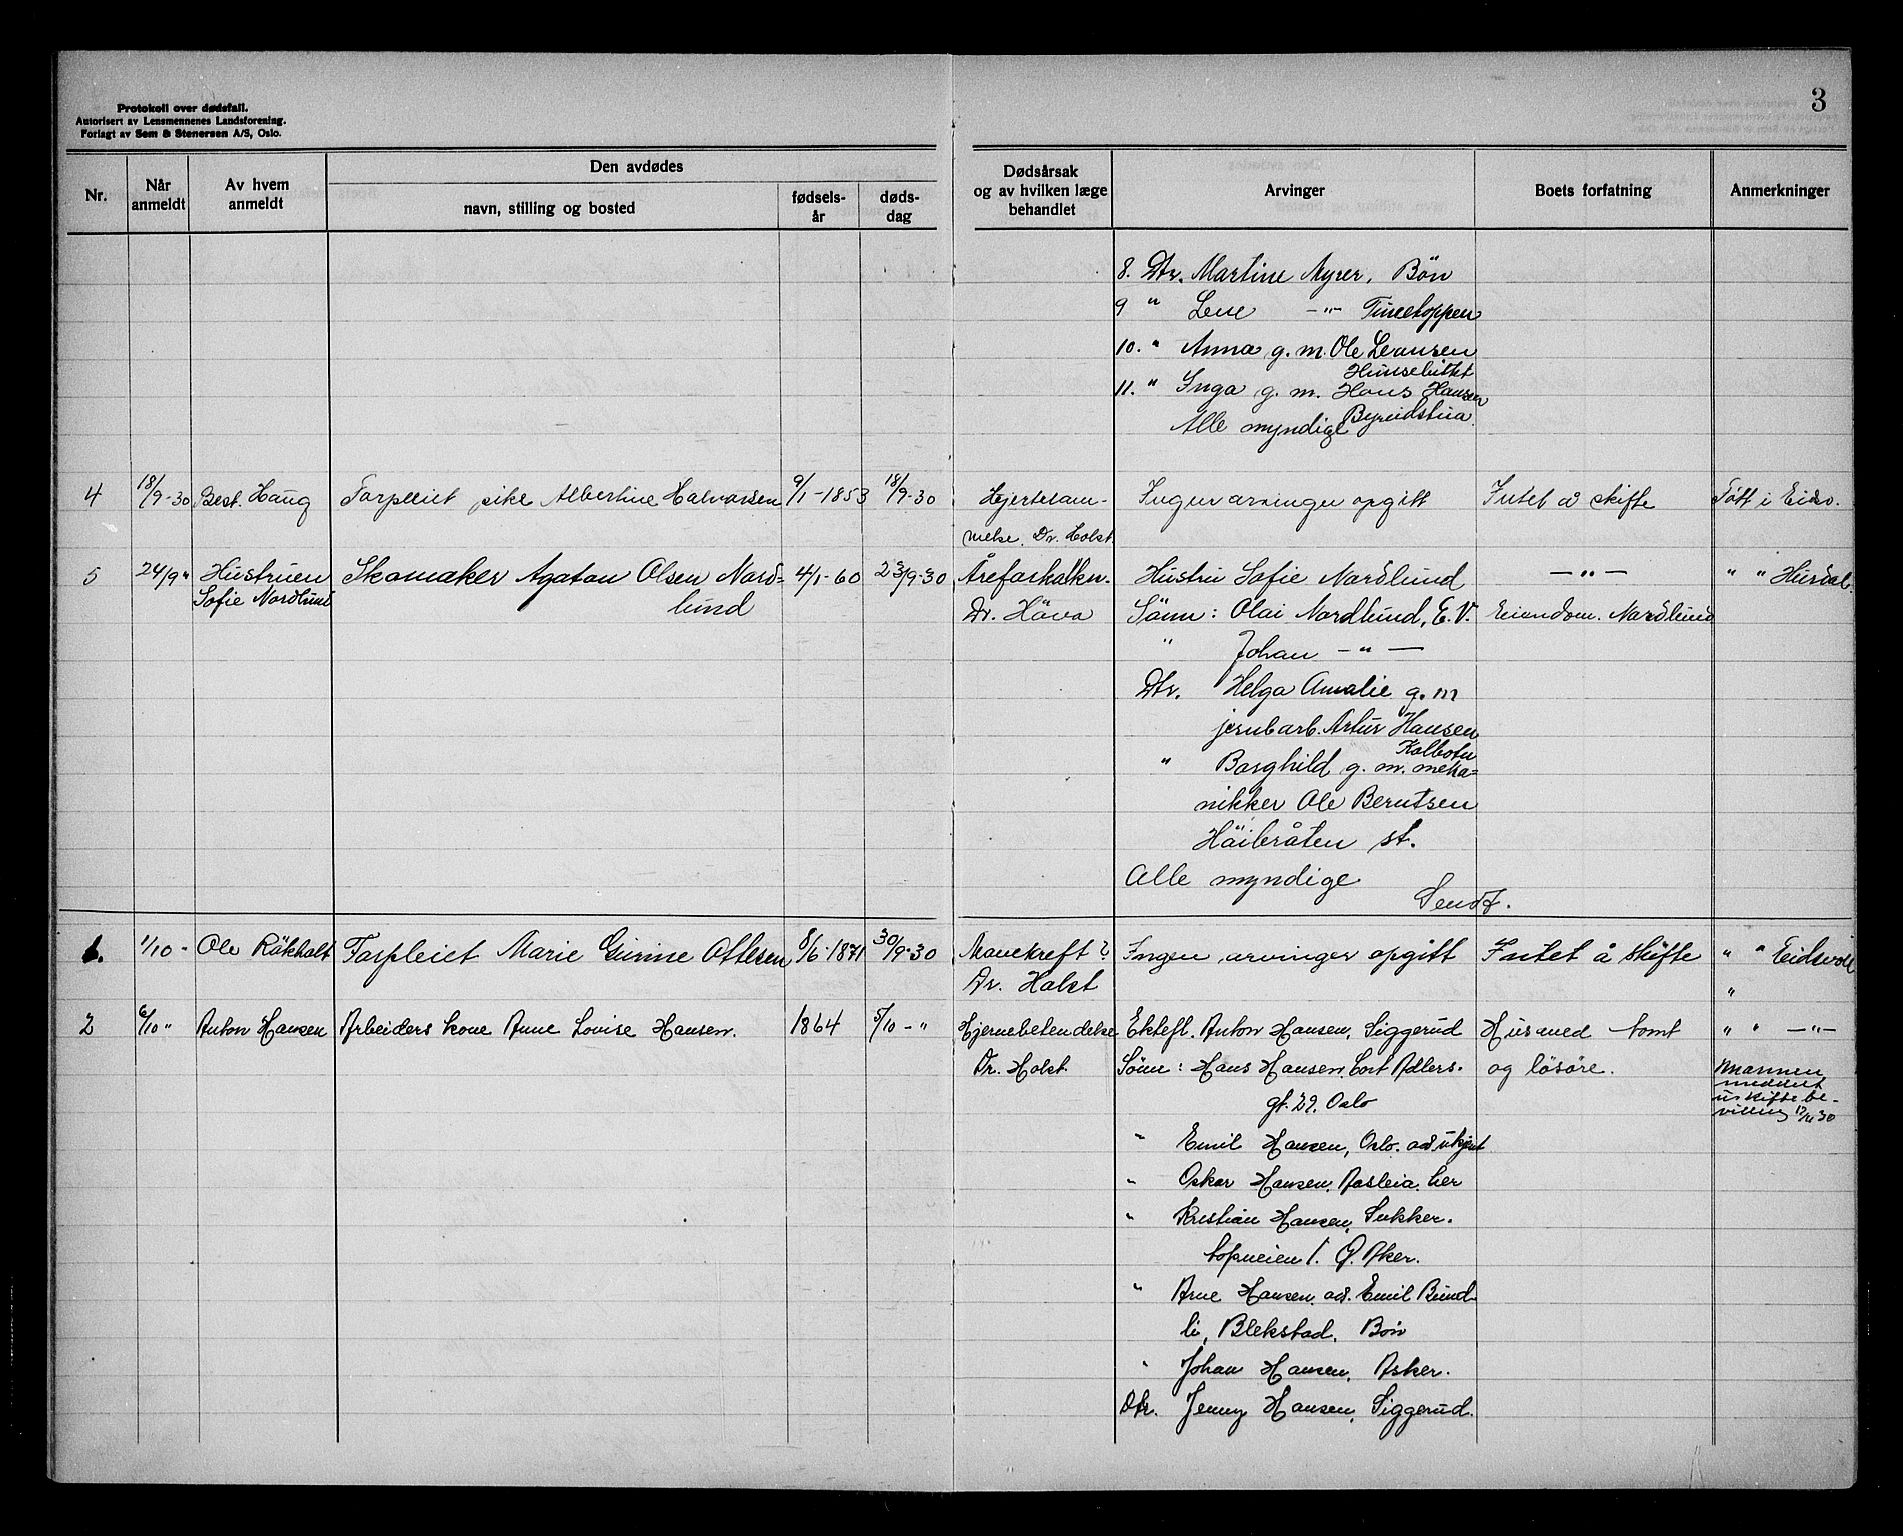 Protokoll over dødsfall.
Autorisert av Lensmennenes Landsforening.
Forlagt av Sem & Stenersen A/S, Oslo.
3
Nr.
Når anmeldt
Av hvem anmeldt
Den avdødes
navn, stilling og bosted
fødsels-
år
døds-
dag
Dødsårsak
og av hvilken læge
behandlet
Arvinger
Boets forfatning
Anmerkninger
8. Dtr. Martine Myrer, Bön
9 " Lene —"—
10. " Anna g. m. Ole Levansen
11. " Inga g. m. Hans Hansen
Alle myndige
4 18/9-30 Best. Haug Forpleiet pike Albertine Halvorsen 9/1-1853 18/9-30 Hjertelam- Ingen arvinger opgitt Intet å skifte Födt i Eidsv.
melse. Dr. Holst
5 24/9 " Hustruen Skomaker Agaton Olsen Nord- 4/1-60 23/9-30 Åreforkalkn. Hustru Sofie Nordlund —"— " " Hurdal.
Sofie Nordlund lund Dr. Höva Sönn: Olai Nordlund, E.V. Eiendom. Nordlund
" Johan —"—
Dtr. Helga Amalie g. m
jernbarb. Artur Hansen
Kolbotn
" Borghild g. m. meka-
nikker Ole Berntsen
Häibråten st.
Alle myndige
Sendt.
1. 1/10 - Ole Räkholt Forpleiet Marie Gurine Ottesen 8/6-1871 30/9-30 Mavekreft? Ingen arvinger opgitt Intet å skifte " " Eidsvoll
Dr. Holst "
2 6/10 " Anton Hansen Arbeiders kone Anne Lovise Hansen. 1864 5/10 - " Hjernebetendelse Ektefl. Anton Hansen, Siggerud Hus med tomt " " —"—
Dr. Holst. Sönn: Hans Hansen, Cort Adlers. og lösöre. Mannen
gt. 29. Oslo meddelt
uskiftebe-
villing 17/11 30
" Emil Hansen, Oslo. ad ukjent
" Oskar Hansen, Aasleia. her
" Kristian Hansen, Sukker.
toppveien 1. Ö. Aker.
" Arne Hansen. ad. Emil Bund-
li, Blekstad. Bön
" Johan Hansen, Asker.
Dtr. Jenny Hansen, Siggerud.